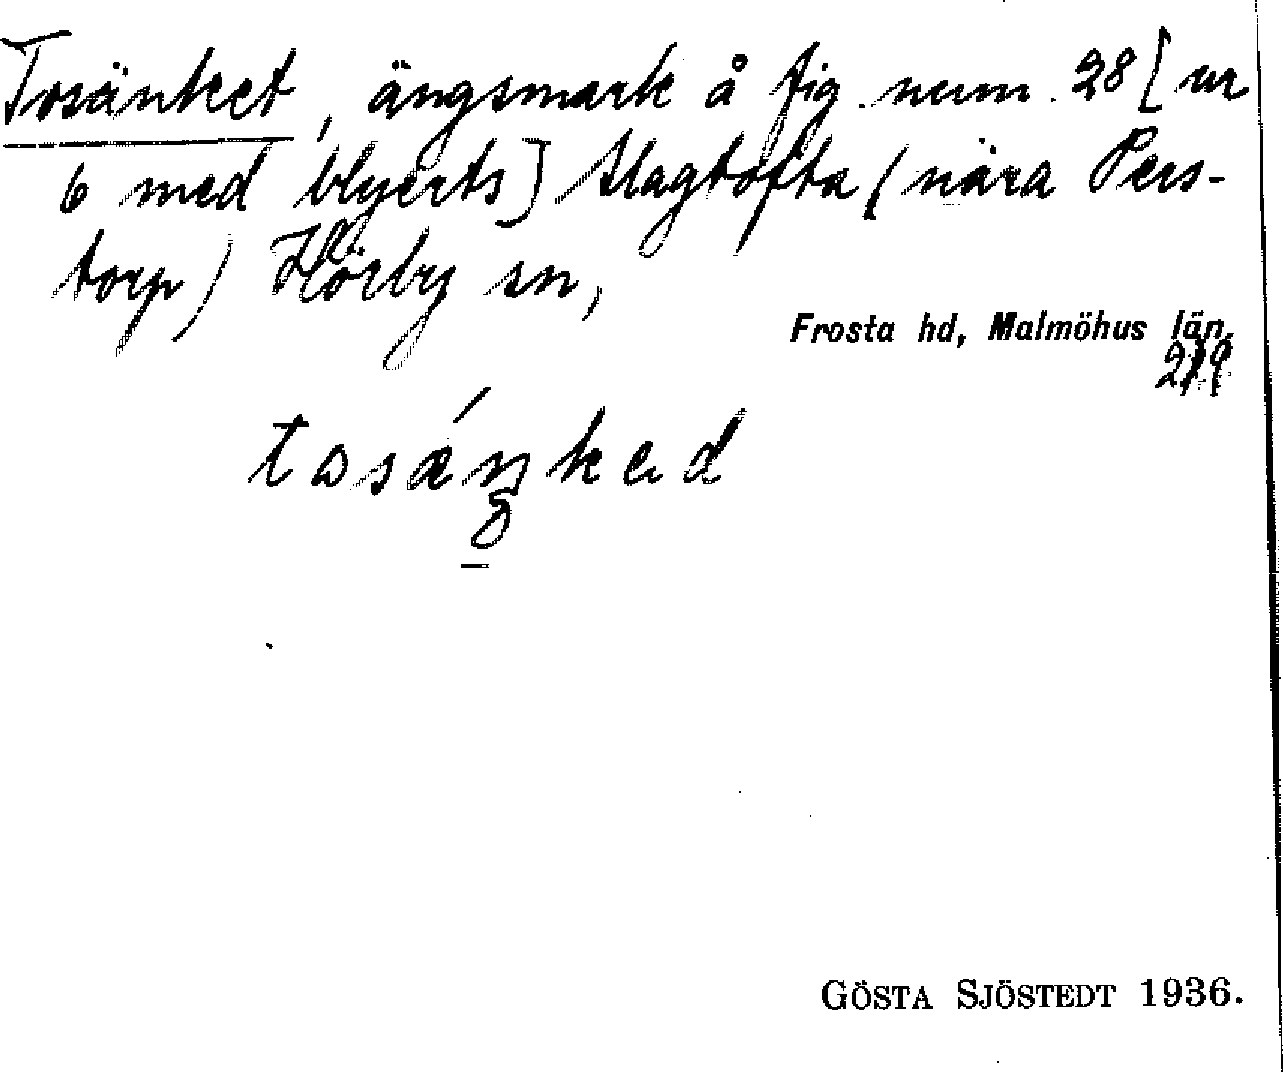 Tosänket, ängsmark å fig. num. 28 [ nr
6 med blyerts] Slagtofta (nära Pers-
torp) Hörby sn,
Frosta hd, Malmöhus län.
tosáŋkəd
GÖSTA SJÖSTEDT 1936.